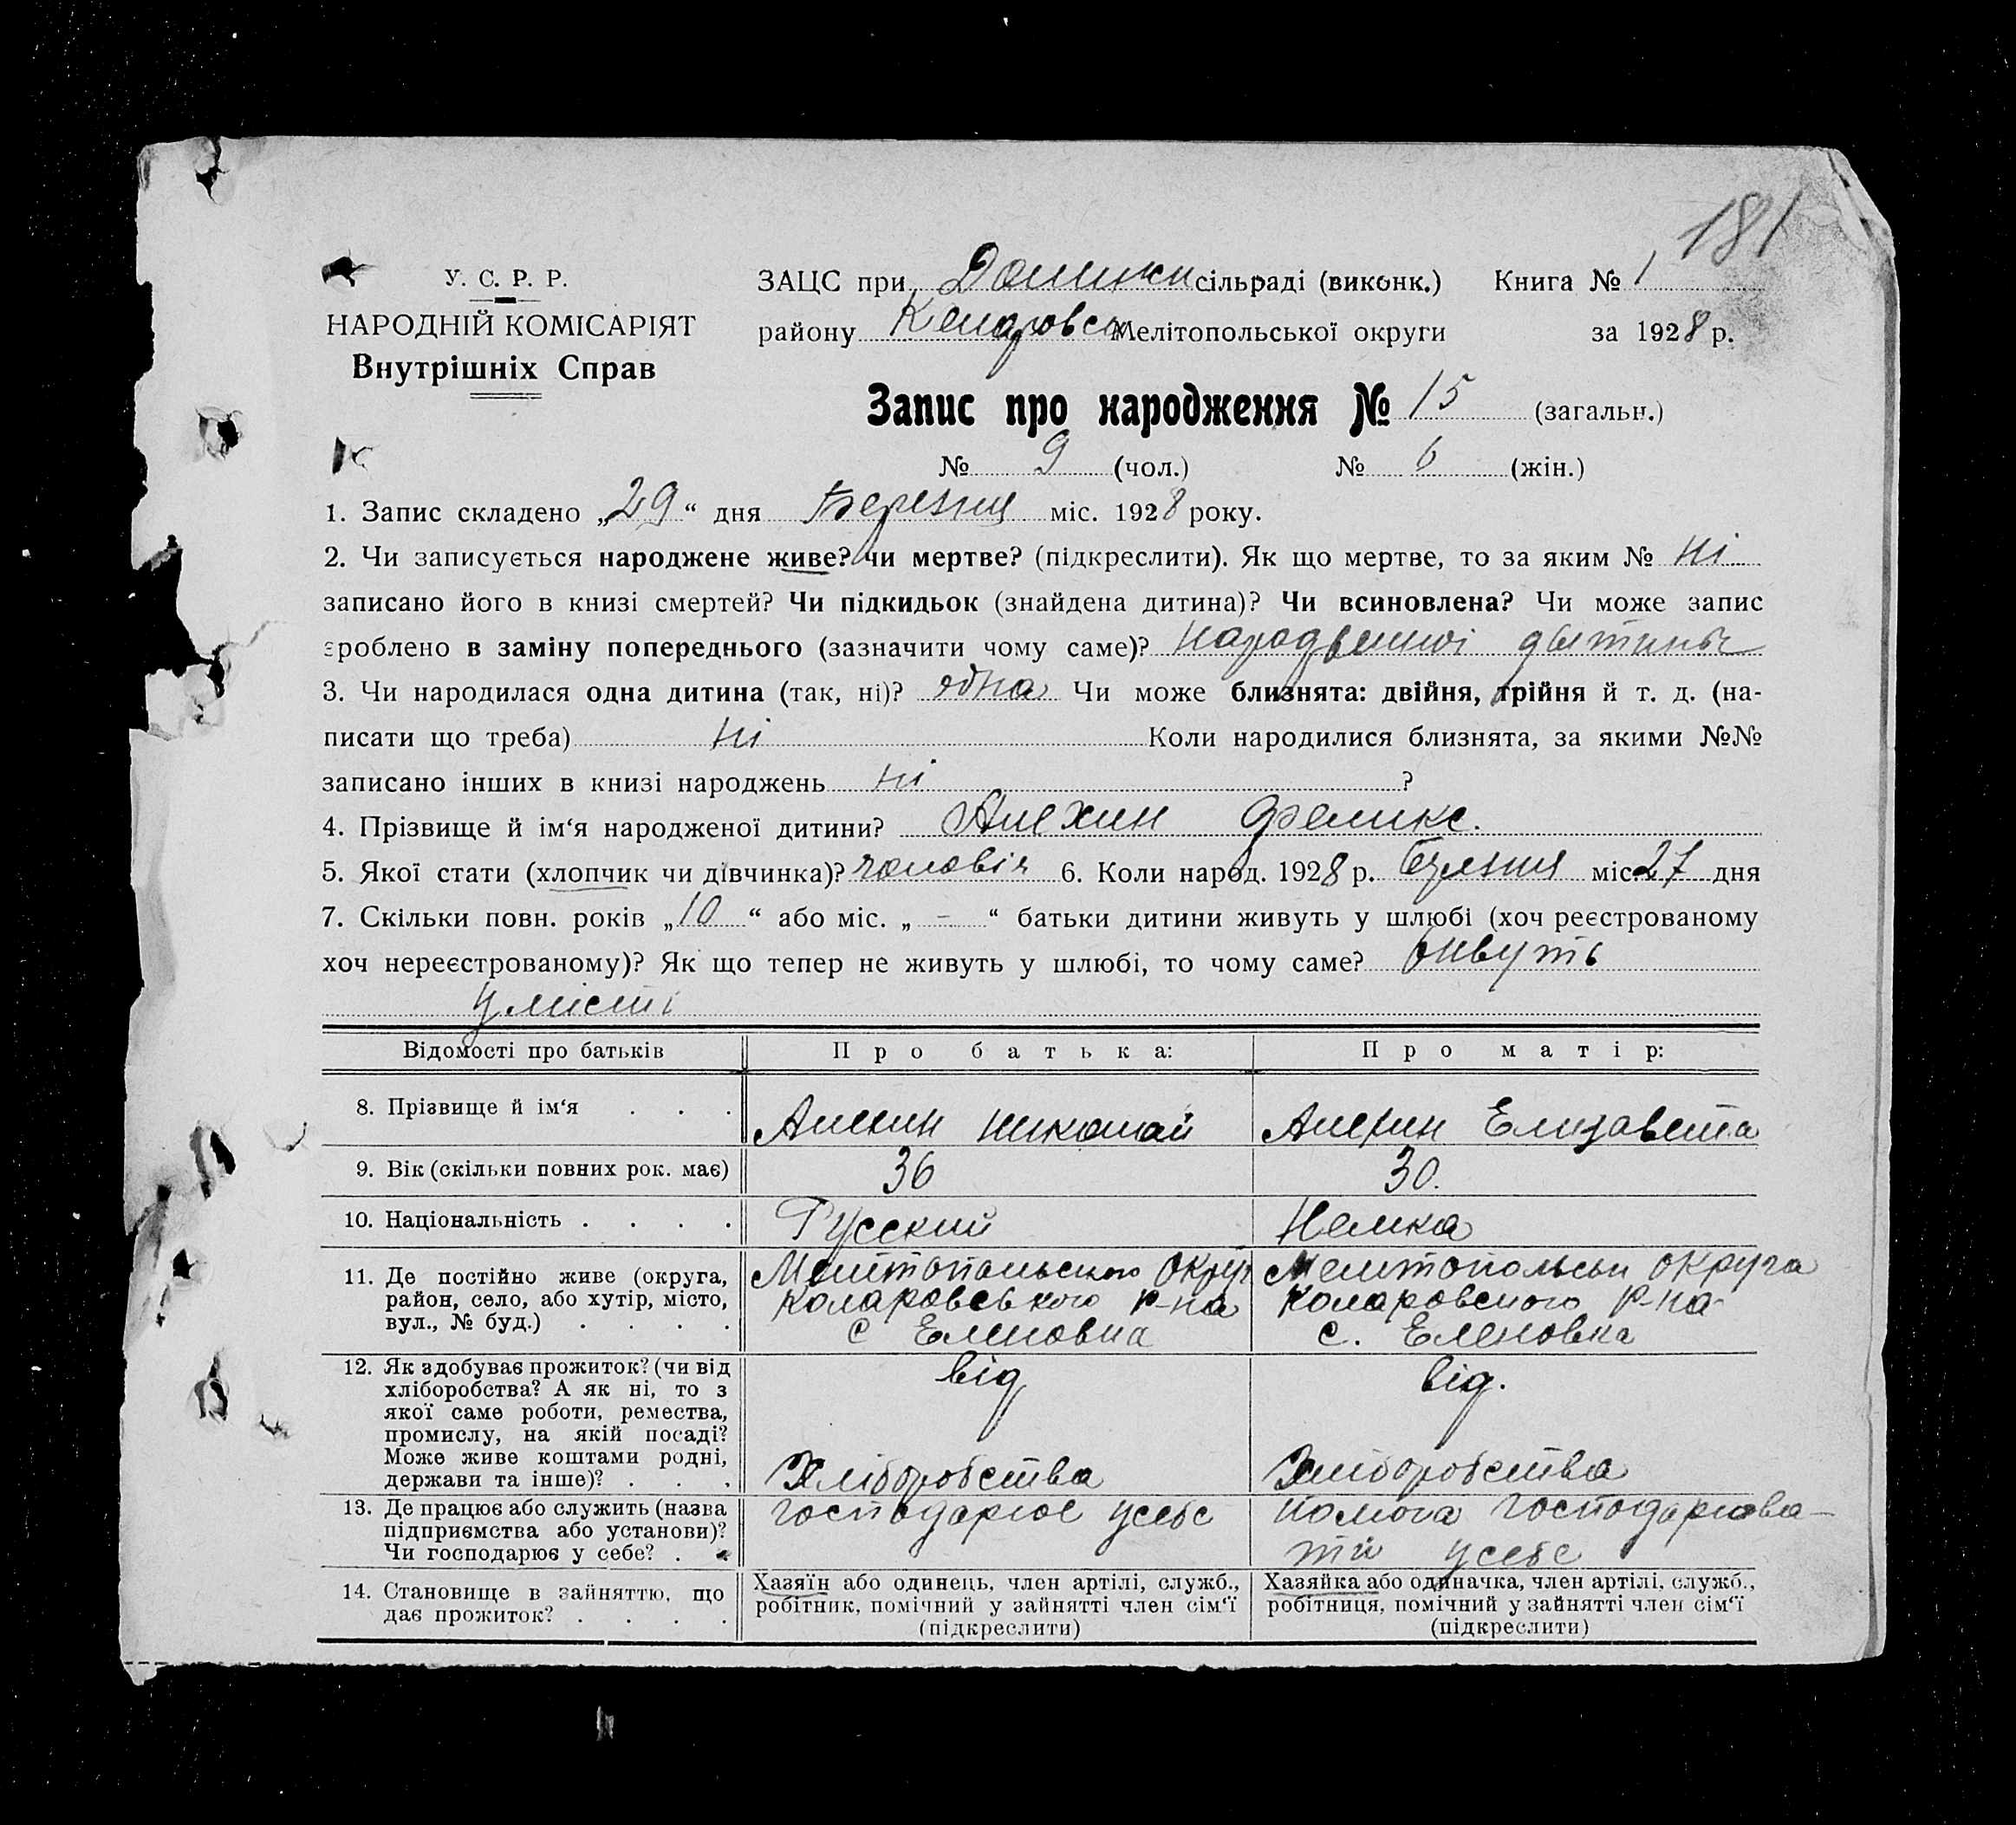 181
У. С. Р. Р.
НАРОДНІЙ КОМІСАРІЯТ
Внутрішніх Справ
ЗАЦС при сільраді (виконк.) Книга № 1
району Мелітопольської округи за 1928 р.
Запис про народження № 15 (загальн.)
№ 9 (чол.) № 6 (жін.)
1. Запис складено „29“ дня Березня міс. 1928 року.
2. Чи записується народжене живе? чи мертве? (підкреслити). Як що мертве, то за яким № ні
записано його в книзі смертей? Чи підкидьок (знайдена дитина)? Чи всиновлена? Чи може запис
зроблено в заміну попереднього (зазначити чому саме)?
3. Чи народилася одна дитина (так, ні)? одна Чи може близнята: двійня, трійня й т. д. (на-
писати що треба) ні Коли народилися близнята, за якими №№
записано інших в книзі народжень ні ?
4. Прізвище й ім‘я народженої дитини? Алехин Феликс.
5. Якої стати (хлопчик чи дівчинка)? чоловіч 6. Коли народ. 1928 р. березня міс. 27 дня
7. Скільки повн. років „10“ або міс. „-“ батьки дитини живуть у шлюбі (хоч реєстрованому
хоч нереєстрованому)? Як що тепер не живуть у шлюбі, то чому саме? живуть
у місті
Відомості про батьків Про батька: Про матір:
8. Прізвище й ім‘я . . . Алехин Николай Алехин Елизавета
9. Вік (скільки повних рок. має) 36 30.
10. Національність . . . . Русский Немка
11. Де постійно живе (округа,
район, село, або хутір, місто,
вул., № буд.) . . . .
Мелитопольского Округ
Коларовського р-на
с Еленовка
Мелитопольськ округа
Коларовского р-на
с. Еленовка
12. Як здобуває прожиток? (чи від
хліборобства? А як ні, то з
якої саме роботи, ремества,
промислу, на якій посаді?
Може живе коштами родні,
держави та інше)? . . .
від
Хліборобства
від.
Хліборобства
13. Де працює або служить (назва
підприємства або установи)?
Чи господарює у себе? .
господарює усебе
помога господарюва-
ти усебе
14. Становище в зайняттю, що
дає прожиток? . . . .
Хазяїн або одинець, член артілі, служб.,
робітник, помічний у зайнятті член сім‘ї
(підкреслити)
Хазяйка або одиначка, член артілі, служб.,
робітниця, помічний у зайнятті член сім‘ї
(підкреслити)